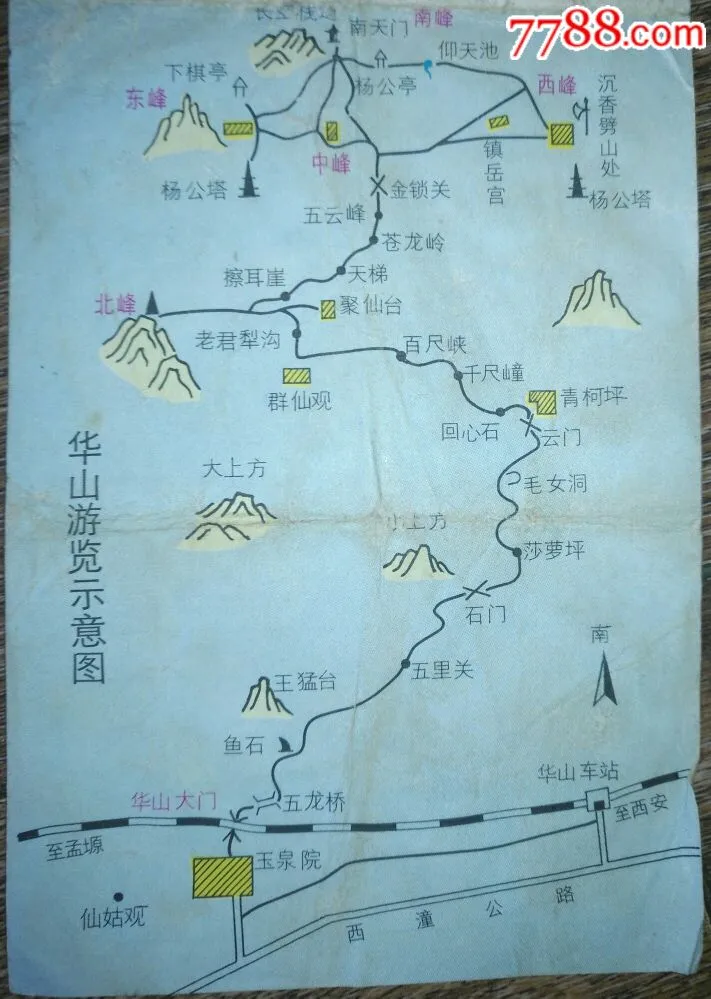 7788.com
长空栈道
南天门
南峰
仰天池
下棋亭
杨公亭
东峰
西峰
沉香劈山处
中峰
镇岳宫
杨公塔
金锁关
杨公塔
五云峰
苍龙岭
擦耳崖
天梯
北峰
聚仙台
老君犁沟
百尺峡
千尺㠉
群仙观
青柯坪
回心石
云门
华山游览示意图
大上方
毛女洞
小上方
莎萝坪
石门
南
五里关
王猛台
鱼石
华山车站
华山大门
五龙桥
至西安
至孟塬
玉泉院
仙姑观
西潼公路